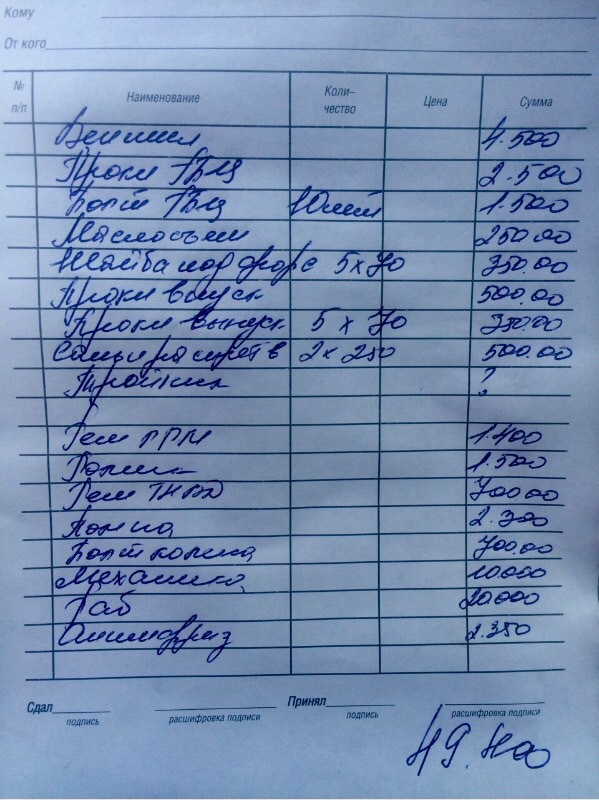 Кому
От кого
№ п/п Наименование Коли-чество Цена Сумма
4.500
Проки ГБЦ 2.500
Болт ГБЦ 10шт 1.500
Маслосъем 250.00
Шайба под форс 5 x 70 350.00
Проки впуск 500.00
Проки выпуск 5 x 70 350.00
2 x 250 500.00
Тройник ?
Рем ГРМ 1.400
Ролик 1.500
Рем ТНВД 700.00
Помпа 2.300
Болт колена 700.00
Механика 10000
Раб 20000
Антифриз 2.350
Сдал Принял
подпись расшифровка подписи подпись расшифровка подписи
49.400